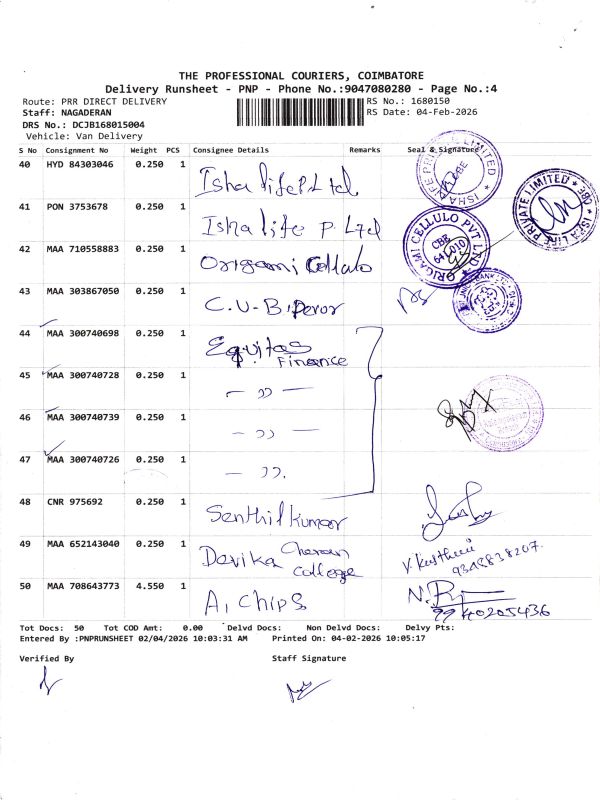 THE PROFESSIONAL COURIERS, COIMBATORE
Delivery Runsheet - PNP - Phone No.:9047080280 - Page No.:4
Route: PRR DIRECT DELIVERY RS No.: 1680150
Staff: NAGADERAN RS Date: 04-Feb-2026
DRS No.: DCJB168015004
Vehicle: Van Delivery
S No Consignment No Weight PCS Consignee Details Remarks Seal & Signature
40 HYD 84303046 0.250 1 Isha life P. Ltd
41 PON 3753678 0.250 1 Isha life P. Ltd
42 MAA 710558883 0.250 1 Origami Cellulo
43 MAA 303867050 0.250 1 C.U.B.
44 MAA 300740698 0.250 1 Equitas Finance
45 MAA 300740728 0.250 1 — ,, —
46 MAA 300740739 0.250 1 — ,, —
47 MAA 300740726 0.250 1 — ,,.
48 CNR 975692 0.250 1 Senthil Kumar
49 MAA 652143040 0.250 1 Devika College
50 MAA 708643773 4.550 1 A, Chips
ISHA LIFE PRIVATE LIMITED
ORIGAMI CELLULO PVT LTD
CBE
641 010
9940205436
Tot Docs: 50 Tot COD Amt: 0.00 Delvd Docs: Non Delvd Docs: Delvy Pts:
Entered By :PNPRUNSHEET 02/04/2026 10:03:31 AM Printed On: 04-02-2026 10:05:17
Verified By Staff Signature